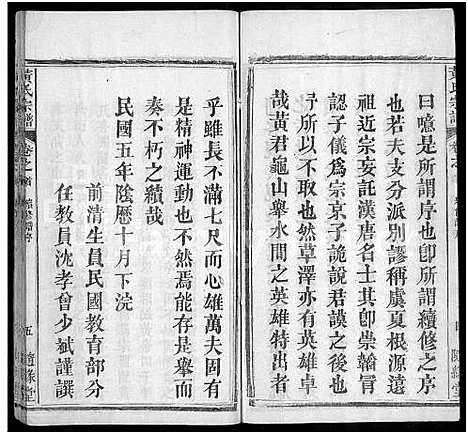 黃氏宗譜
卷之首
曰噫是所謂序也卽所謂續修之序
也若夫支分派別謬稱虞夏根源遠
祖近宗妄託漢唐名士其卽崇韜冐
認子儀爲宗京子詭說君謨之後也
予所以不取也然草澤亦有英雄卓
哉黃君龜山舉水間之英雄特出者
乎雖長不滿七尺而心雄萬夫固有
是精神運動也不然焉能是舉而
奏不朽之績哉
民國五年陰曆十月下浣
前清生員民國教育部分
任教員沈孝曾少斌謹譔
黃氏宗譜
卷之首
續修譜序
五
隨緣堂